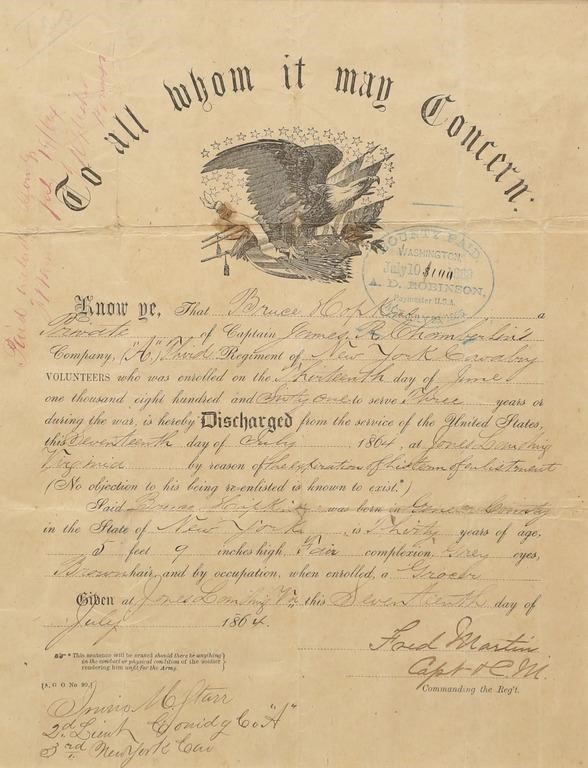 To all whom it may Concern:
BOUNTY PAID
WASHINGTON
July 10 $100
A. D. ROBINSON,
Paymaster U.S.A.
Know ye, That Bruce Hopkins a
Private of Captain James R. Chamberlin's
Company, ("A",) Third Regiment of New York Cavalry
VOLUNTEERS who was enrolled on the Thirteenth day of June
one thousand eight hundred and Sixty one to serve Three years or
during the war, is hereby Discharged from the service of the United States,
this Seventeenth day of July 1864, at Jones Landing
Virginia by reason of the expiration of his term of enlistment
(No objection to his being re-enlisted is known to exist.*)
Said Bruce Hopkins was born in County
in the State of New York, is Thirty years of age,
5 feet 9 inches high, Fair complexion, Grey eyes,
Brown hair, and by occupation, when enrolled, a Grocer
Given at Jones Landing Va this Seventeenth day of
July 1864.
* This sentence will be erased should there be anything
in the conduct or physical condition of the soldier
rendering him unfit for the Army.
[A. G. O. No. 99.]
Fred Martin
Capt & C.M.
Commanding the Reg't.
M. Starr
2d. Lieut Comdg Co "A"
3rd New York Cav